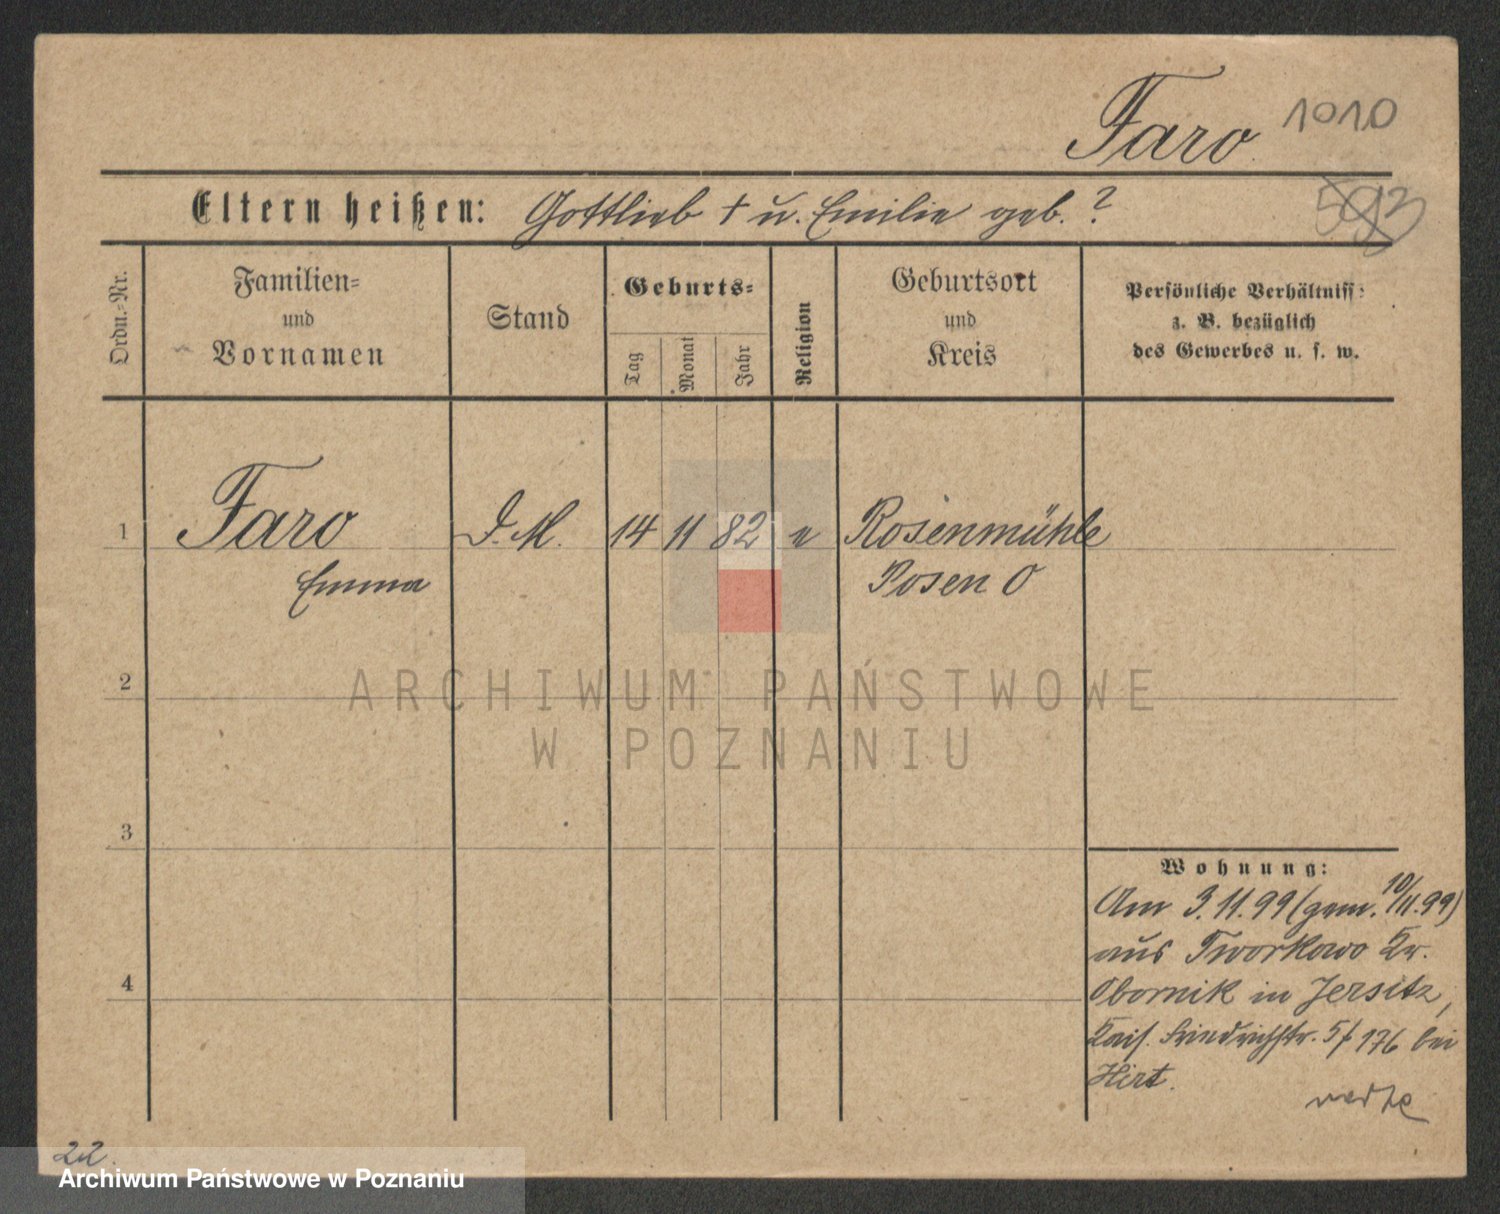 Faro 1010
593
Eltern heißen: Gottlieb † u. Emilie geb. ?
Ordn.-Nr.
Familien-
und
Vornamen
Stand
Geburts-
Tag
Monat
Jahr
Religion
Geburtsort
und
Kreis
Persönliche Verhältniss:
z. B. bezüglich
des Gewerbes u. s. w.
1 Faro D. M. 14 11 82 e Rosenmühle
Emma Posen O
2
3
4
Wohnung:
Am 3.11.99 (gem. 10/11.99)
aus Tworkowo Kr.
Obornik in Jersitz,
Kais. Friedrichstr. 5/176 bei
Hirt.
22.
ARCHIWUM PAŃSTWOWE
W POZNANIU
Archiwum Państwowe w Poznaniu